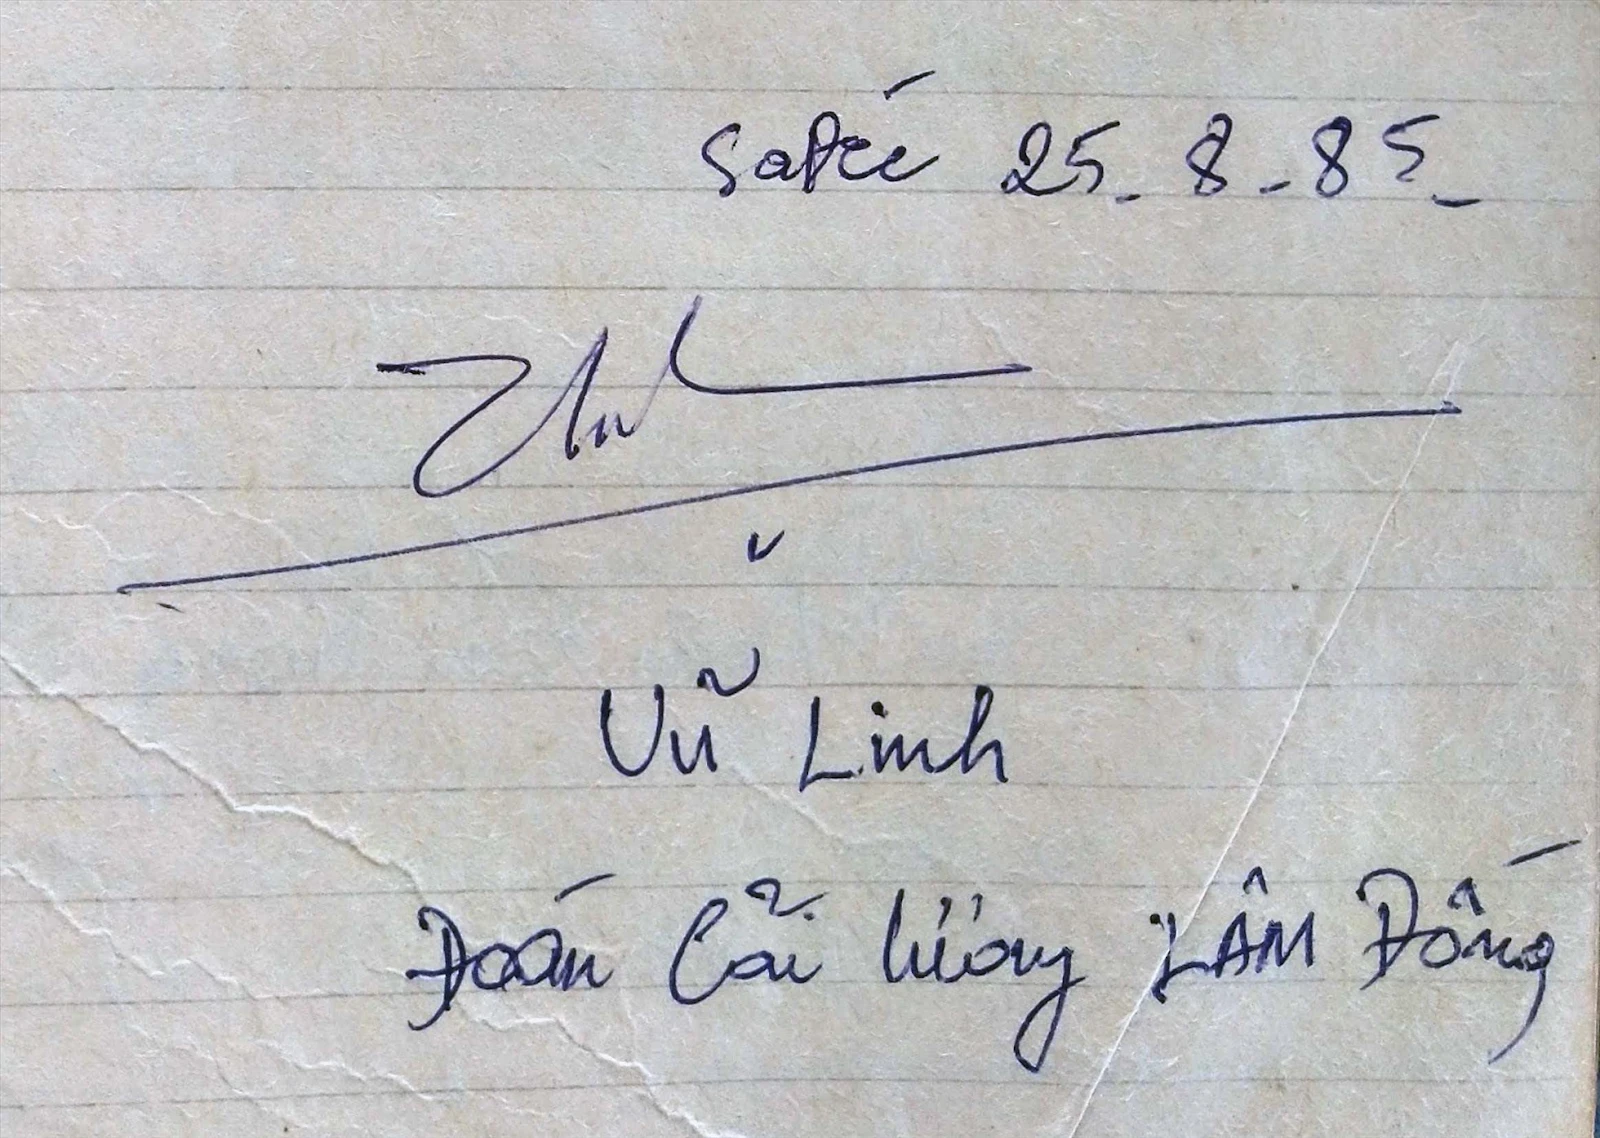 SaĐéc 25-8-85-
Vũ Linh
Đoàn Cải lương LÂM Đồng